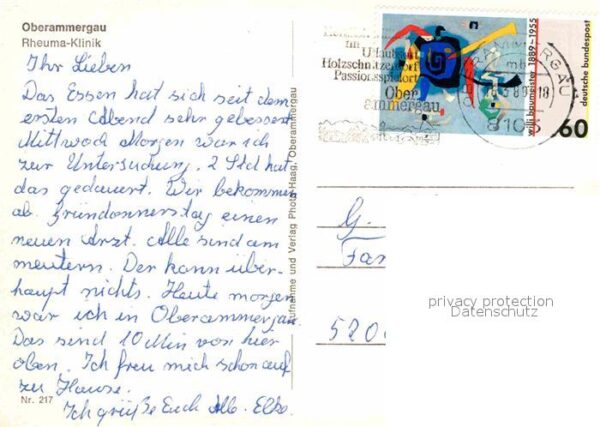 Oberammergau
Rheuma-Klinik
Ihr Lieben
Das Essen hat sich seit dem
ersten Abend sehr gebessert
Mittwoch Morgen war ich
zur Untersuchung. 2 Std hat
das gedauert. Wir bekommen
ab. Gründonnerstag einen
neuen Arzt. Alle sind am
meutern. Der kann über-
haupt nichts. Heute morgen
war ich in Oberammergau.
Das sind 10 Min von hier
oben. Ich freu mich schon auf
zu Hause.
Nr. 217
Ich grüße Euch Alle.
Aufnahme und Verlag Photo-Haag, Oberammergau
im
Urlaubs-
Holzschnitzerdorf
Passionsspielort
Ober
ammergau
8103
willi baumeister 1889-1955
deutsche bundespost
60
G.
Fam
5200
privacy protection
Datenschutz